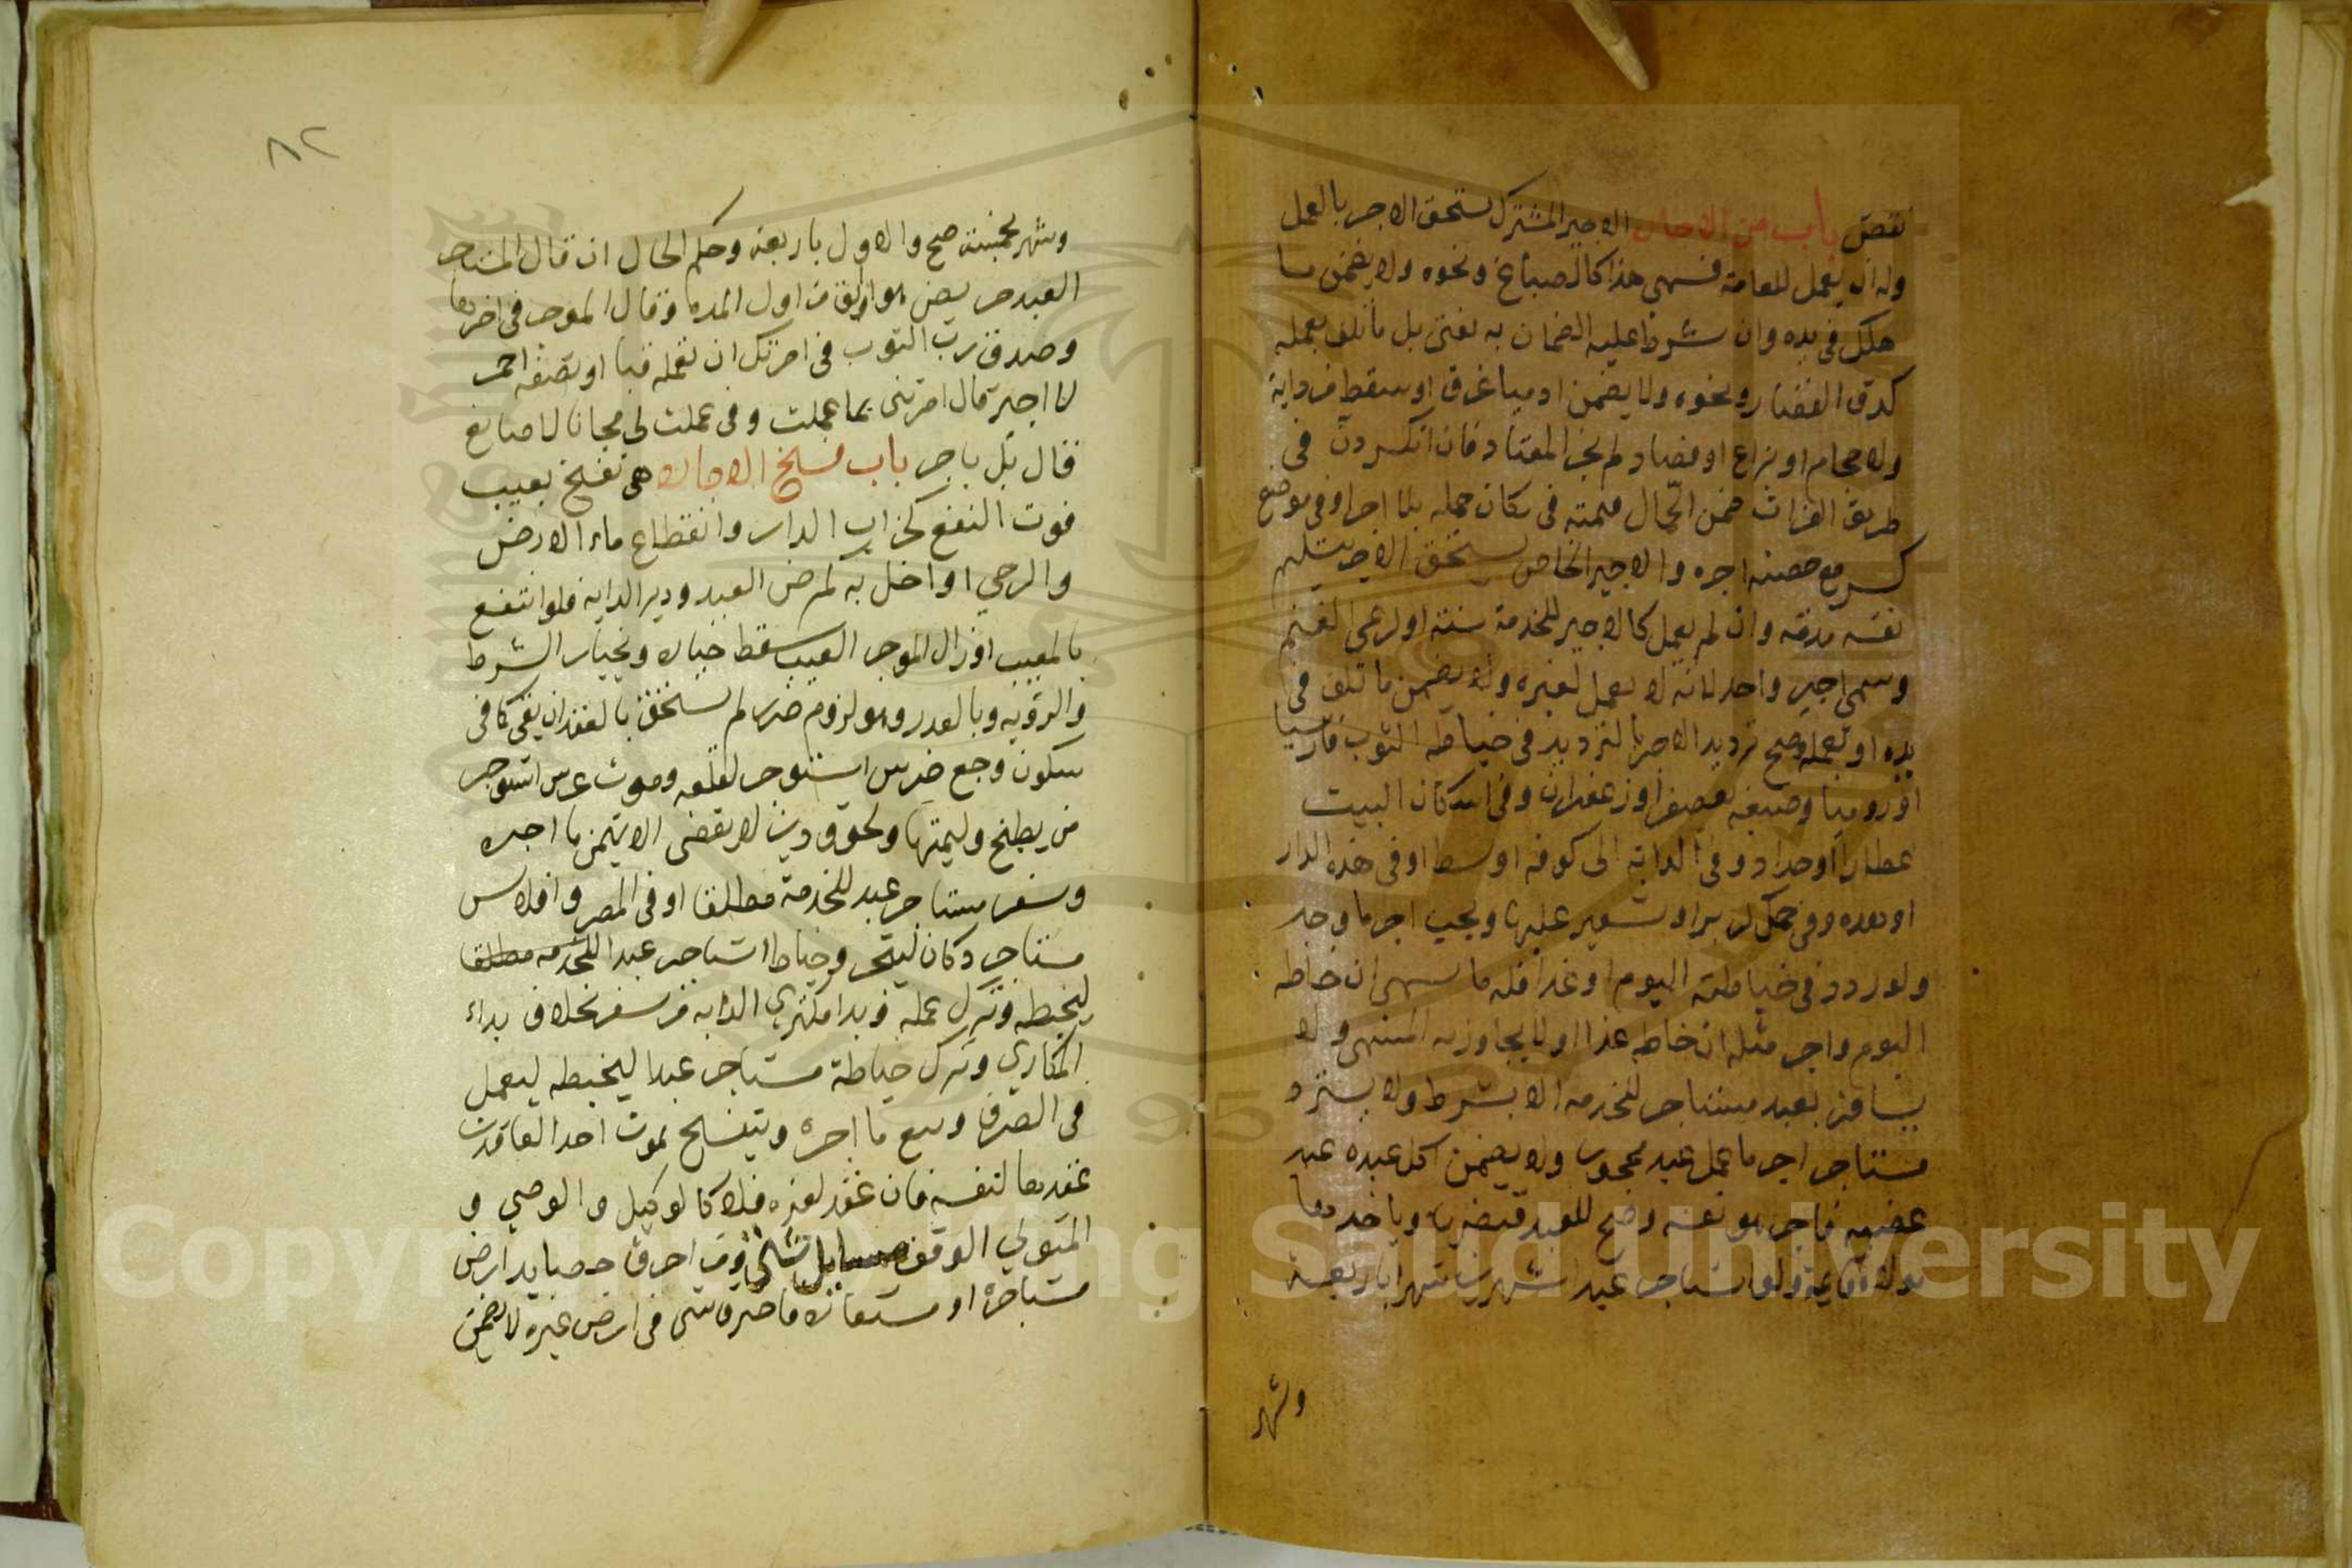 نقض باب من الاجارة الاجير المشترك يستحق الاجر بالعمل
وله ان يعمل للعامة فسمي هذا كالصباغ ونحوه ولا يضمن ما
هلك في يده وان شرط عليه الضمان به يفتى بل ما تلف بعمله
كدق القصار ونحوه ولا يضمن ادميا غرق او سقط من دابة
ولا حجام او بزاغ او فصاد لم يجز المعتاد فان انكسر دن في
طريق الفرات ضمن الحمال قيمته في مكان حمله بلا اجر او في موضع
كسر مع حصته اجره والاجير الخاص يستحق الاجر بتسليم
نفسه مدته وان لم يعمل كالاجير للخدمة سنة او لرعي الغنم
وسمي اجير واحد لانه لا يعمل لغيره ولا يضمن ما تلف في
يده او بعمله وصح ترديد الاجر بالترديد في خياطة الثوب فارسيا
او روميا وصبغه بعصفر او زعفران وفي اسكان البيت
عطارا او حدادا وفي الدابة الى كوفة او واسط او في هذه الدار
او هذه وفي حمل كر بر او شعير عليها ويجب اجر ما وجد
ولو ردد في خياطته اليوم او غدا فله ما سمى ان خاطه
اليوم واجر مثله ان خاطه غدا ولا يجاوز به المسمى ولا
يسافر بعبد مستاجر للخدمة الا بشرط ولا يسترد
مستاجر اجر ما عمل عبد محجور ولا يضمن اكل عبده عبد
غصبه فاجر هو نفسه وصح للعبد قبضها وياخذها
مولاه قايمة ولو استاجر عبدا شهرين شهرا باربعة
وشهر
٨٢
وشهر بخمسة صح والاول باربعة وحكم الحال ان قال المستاجر
العبد مرض هو او ابق من اول المدة وقال الموجر في اخرها
وصدق رب الثوب في امرتك ان تعمله قبا او تصبغه احمر
لا اجير قال امرتني بما عملت وفي عملت لي مجانا لا صانع
قال بل باجر باب فسخ الاجارة هي تفسخ بعيب
فوت النفع كخراب الدار وانقطاع ماء الارض
والرحي او اخل به كمرض العبد ودبر الدابة فلو انتفع
بالمعيب او زال الموجر العيب سقط خياره وبخيار الشرط
والرؤية وبالعذر وهو لزوم ضرر لم يستحق بالعقد ان بقي كما في
سكون وجع ضرس استوجر لقلعه وموت عرس استوجر
من يطبخ وليمتها ولحوق دين لا يقضى الا بثمن ما اجره
وسفر مستاجر عبد للخدمة مطلقا او في المصر وافلاس
مستاجر دكان ليتجر وخياط استاجر عبدا للخدمة مطلقا
ليخيطه فترك عمله وبدا مكتري الدابة من سفر بخلاف بداء
المكاري وترك خياطة مستاجر عبدا ليخيطه ليعمل
في الصرف وبيع ما اجره وتنفسخ بموت احد العاقدين
عقدها لنفسه فان عقد لغيره فلا كالوكيل والوصي و
المتولي الوقف مسايل شتى ومن احرق حصايد ارض
مستاجرة او مستعارة فاحترق شي في ارض غيره لا يضمن